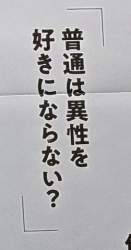 普通は異性を
好きにならない?